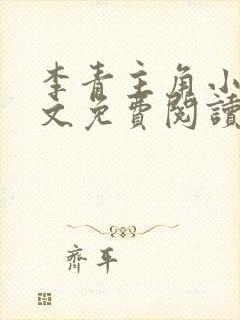 李青主角小
文免費閱讀
齊平